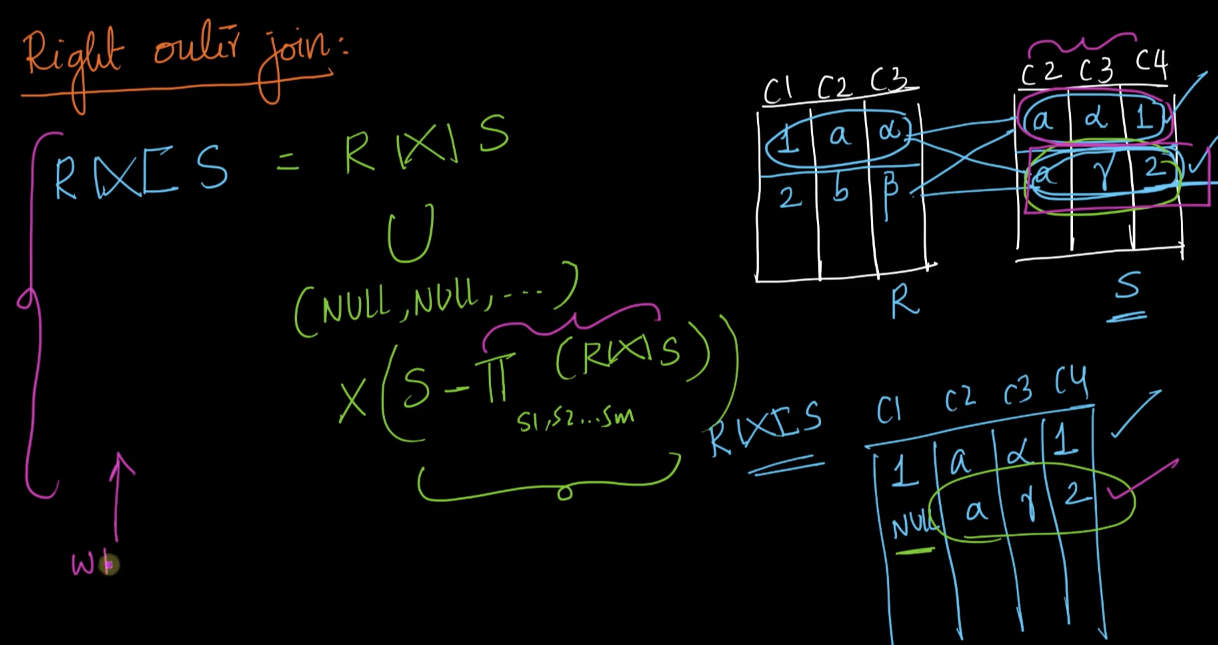 Right outer join:
R⟖S = R⋈S
∪
(NULL, NULL, ...)
X(S - π s1,s2...sm (R⋈S))
w
C1 C2 C3
1 a α
2 b β
R
C2 C3 C4
a α 1
a γ 2
S
R⟖S
C1 C2 C3 C4
1 a α 1
NULL a γ 2